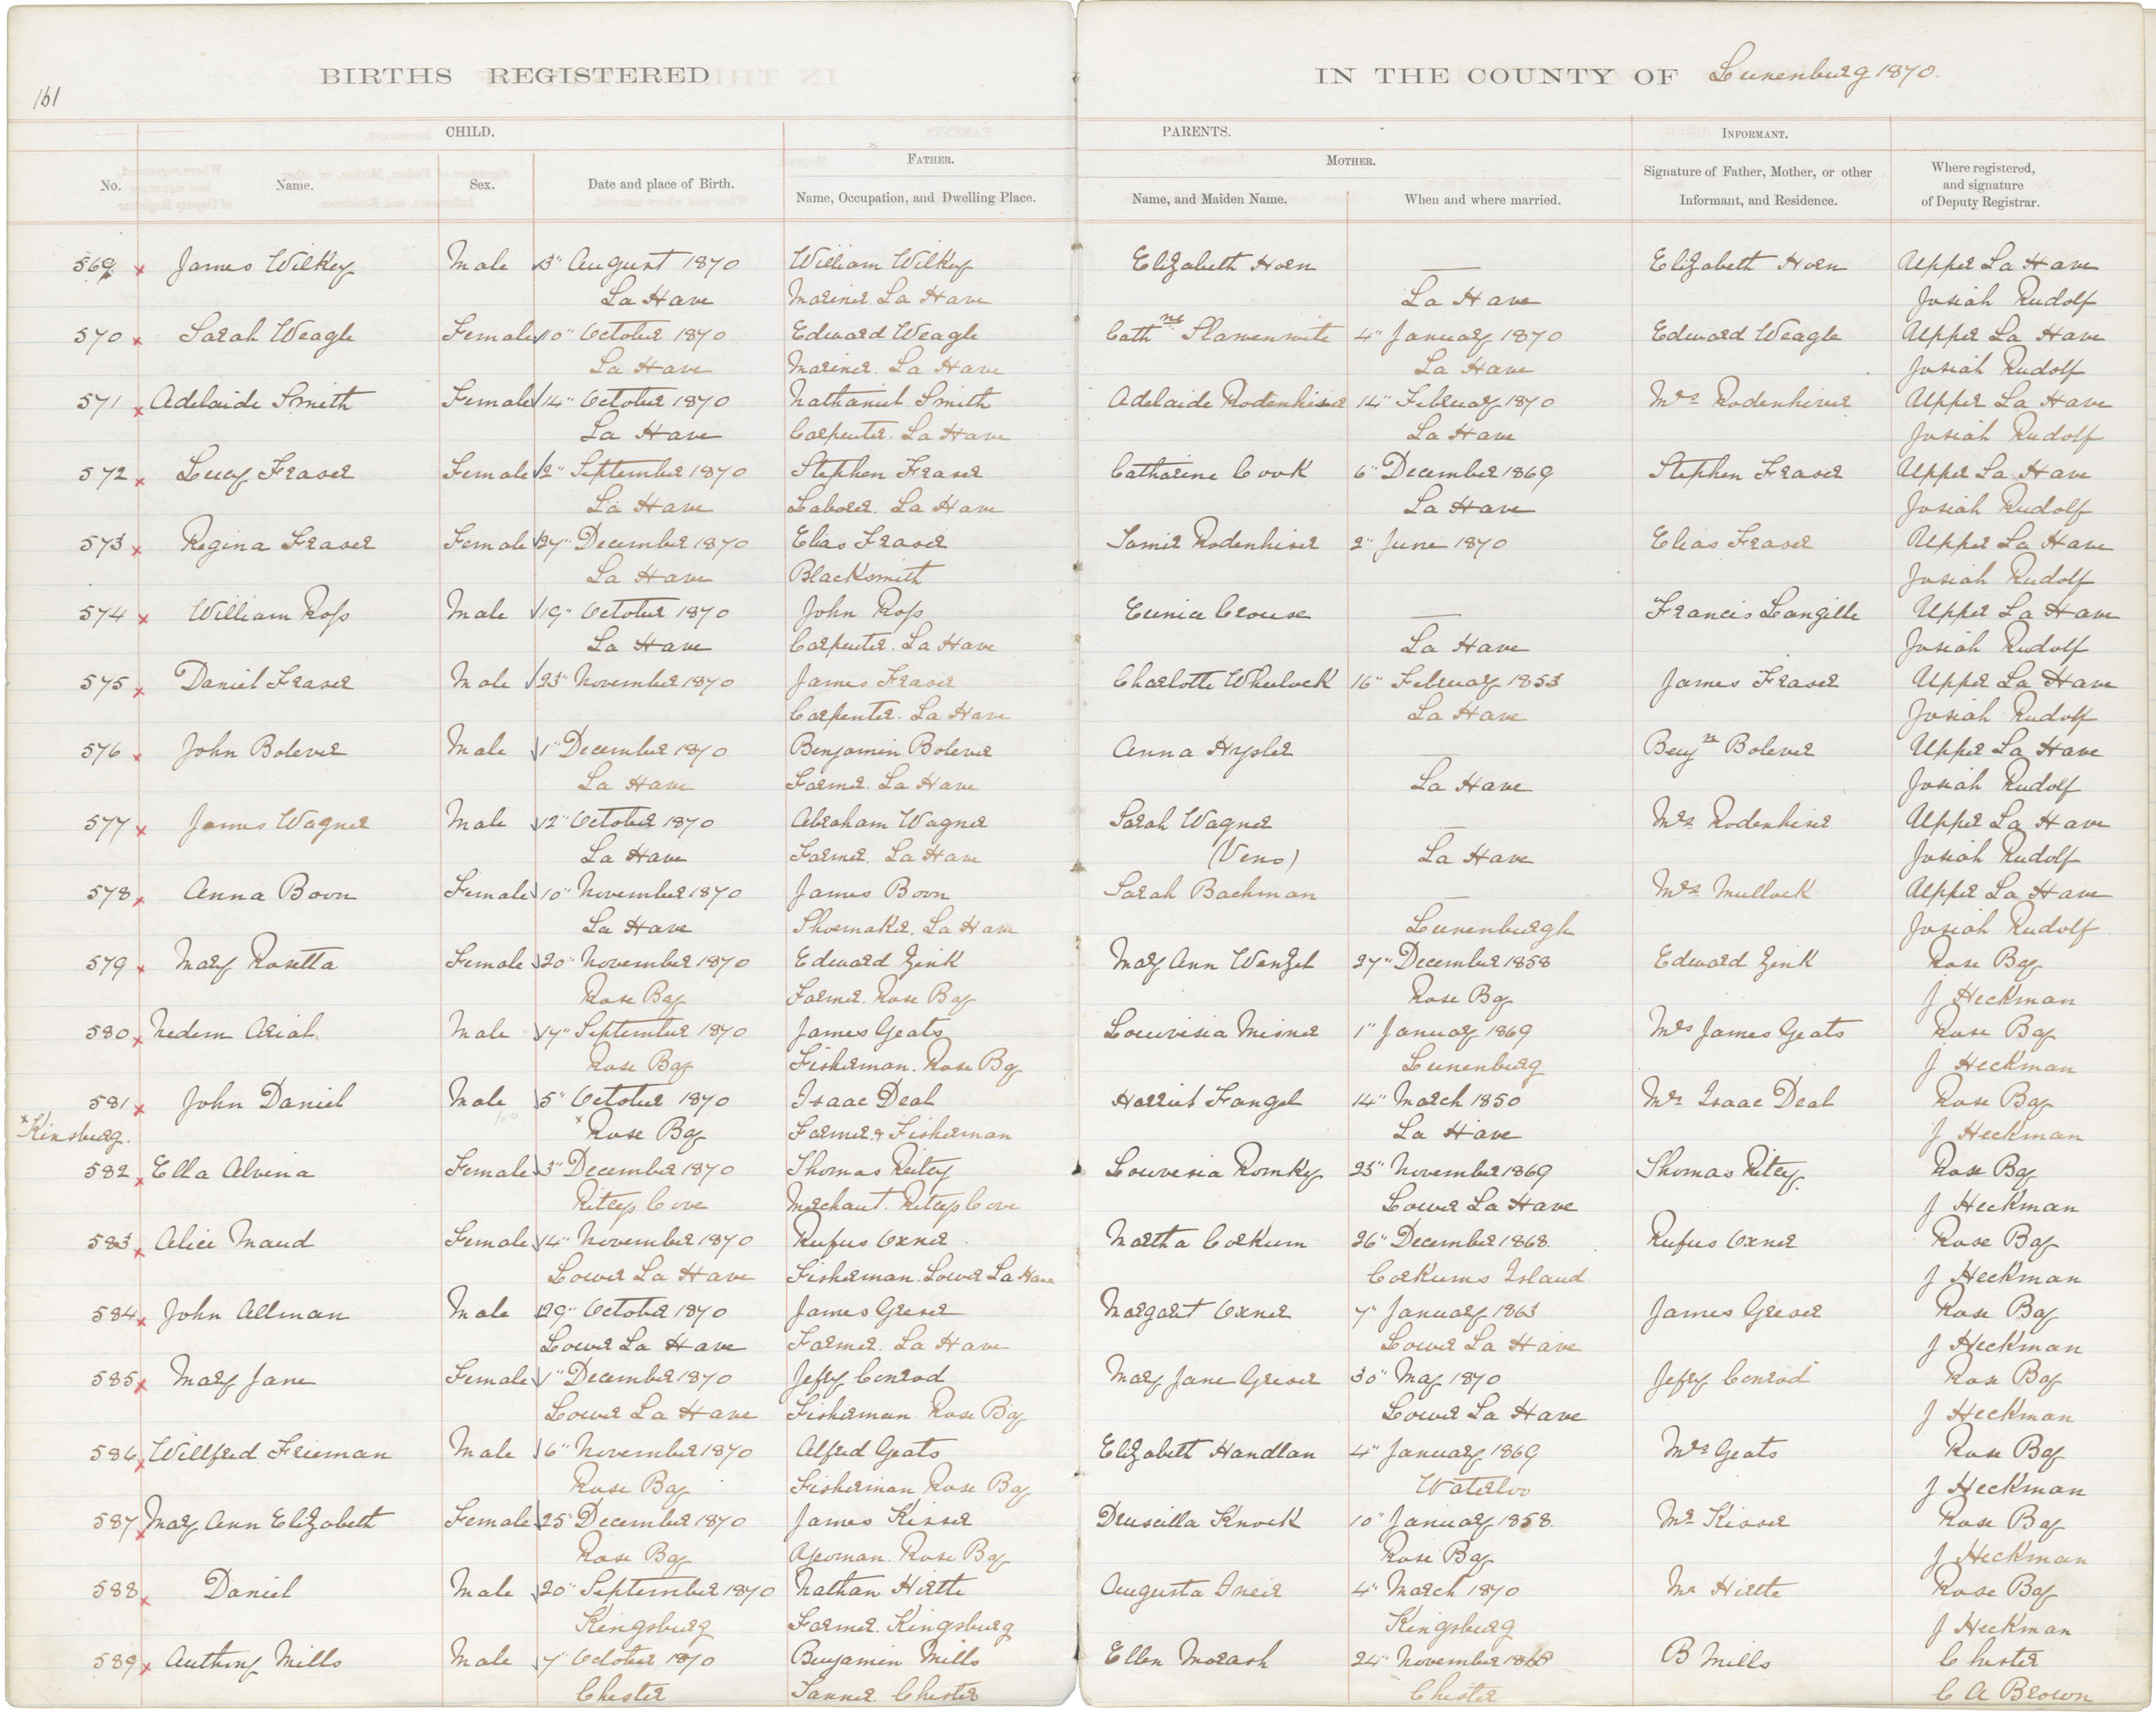 161
BIRTHS REGISTERED IN THE COUNTY OF Lunenburg 1870.
CHILD. PARENTS. INFORMANT.
FATHER. MOTHER.
No. Name. Sex. Date and place of Birth. Name, Occupation, and Dwelling Place. Name, and Maiden Name. When and where married. Signature of Father, Mother, or other Informant, and Residence. Where registered, and signature of Deputy Registrar.
569 x James Wilkey Male 3" August 1870 William Wilkey Elizabeth Horn — Elizabeth Horn Upper La Have
La Have Mariner. La Have La Have Josiah Rudolf
570 x Sarah Weagle Female 10" October 1870 Edward Weagle Cathne Slawenwite 4" January 1870 Edward Weagle Upper La Have
La Have Mariner. La Have La Have Josiah Rudolf
571 x Adelaide Smith Female 14" October 1870 Nathaniel Smith Adelaide Rodenhiser 14" February 1870 Mrs Rodenhiser Upper La Have
La Have Carpenter. La Have La Have Josiah Rudolf
572 x Lucy Fraser Female 2" September 1870 Stephen Fraser Catharine Cook 6" December 1869 Stephen Fraser Upper La Have
La Have Laborer. La Have La Have Josiah Rudolf
573 x Regina Fraser Female 27" December 1870 Elias Fraser Rodenhiser 2" June 1870 Elias Fraser Upper La Have
La Have Blacksmith Josiah Rudolf
574 x William Ross Male 19" October 1870 John Ross Eunice Crouse — Francis Langille Upper La Have
La Have Carpenter. La Have La Have Josiah Rudolf
575 x Daniel Fraser Male 23" November 1870 James Fraser Charlotte Whelock 16" February 1853 James Fraser Upper La Have
Carpenter. La Have La Have Josiah Rudolf
576 x John Bolever Male 1" December 1870 Benjamin Bolever Anna Hysler — Benjn Bolever Upper La Have
La Have Farmer. La Have La Have Josiah Rudolf
577 x James Wagner Male 12" October 1870 Abraham Wagner Sarah Wagner — Mrs Rodenhiser Upper La Have
La Have Farmer. La Have (Veno) La Have Josiah Rudolf
578 x Anna Boon Female 10" November 1870 James Boon Sarah Bachman — Mrs Mullock Upper La Have
La Have Shoemaker. La Have Lunenburgh Josiah Rudolf
579 x Mary Rosetta Female 20" November 1870 Edward Zink Mary Ann Wenzel 27" December 1858 Edward Zink Rose Bay
Rose Bay Farmer. Rose Bay Rose Bay J Heckman
580 x Nedem Ariah Male 17" September 1870 James Geats Louvisia Misner 1" January 1869 Mrs James Geats Rose Bay
Rose Bay Fisherman. Rose Bay Lunenburg J Heckman
581 x John Daniel Male 5" October 1870 Isaac Deal Harriet Fangel 14" March 1850 Mrs Isaac Deal Rose Bay
x Kinsburg. x Rose Bay Farmer & Fisherman La Have J Heckman
582 x Ella Alvina Female 3" December 1870 Thomas Ritcy Louvisia Romkey 25" November 1869 Thomas Ritcy. Rose Bay
Ritcys Cove Merchant. Ritcys Cove Lower La Have J Heckman
583 x Alice Maud Female 14" November 1870 Rufus Oxner Martha Corkum 26" December 1868. Rufus Oxner Rose Bay
Lower La Have Fisherman. Lower La Have Corkums Island J Heckman
584 x John Allman Male 29" October 1870 James Greser Margaret Oxner 7" January 1863 James Greser Rose Bay
Lower La Have Farmer. La Have Lower La Have J Heckman
585 x Mary Jane Female 1" December 1870 Jefry Conrod Mary Jane Greser 30" May 1870 Jefry Conrod Rose Bay
Lower La Have Fisherman Rose Bay Lower La Have J Heckman
586 x Willfred Frieman Male 6" November 1870 Alfred Geats Elizabeth Handlan 4" January 1869 Mrs Geats Rose Bay
Rose Bay Fisherman Rose Bay Waterloo J Heckman
587 x Mary Ann Elizabeth Female 25" December 1870 James Kisser Druscilla Knock 10" January 1858. Mr Kisser Rose Bay
Rose Bay Yeoman. Rose Bay Rose Bay J Heckman
588 x Daniel Male 20" September 1870 Nathan Hirtle Augusta 4" March 1870 Mr Hirtle Rose Bay
Kingsburg Farmer. Kingsburg Kingsburg J Heckman
589 x Authiny Mills Male 7" October 1870 Benjamin Mills Ellen Morash 24" November 1868 B Mills Chester
Chester Tanner. Chester Chester C A Brown